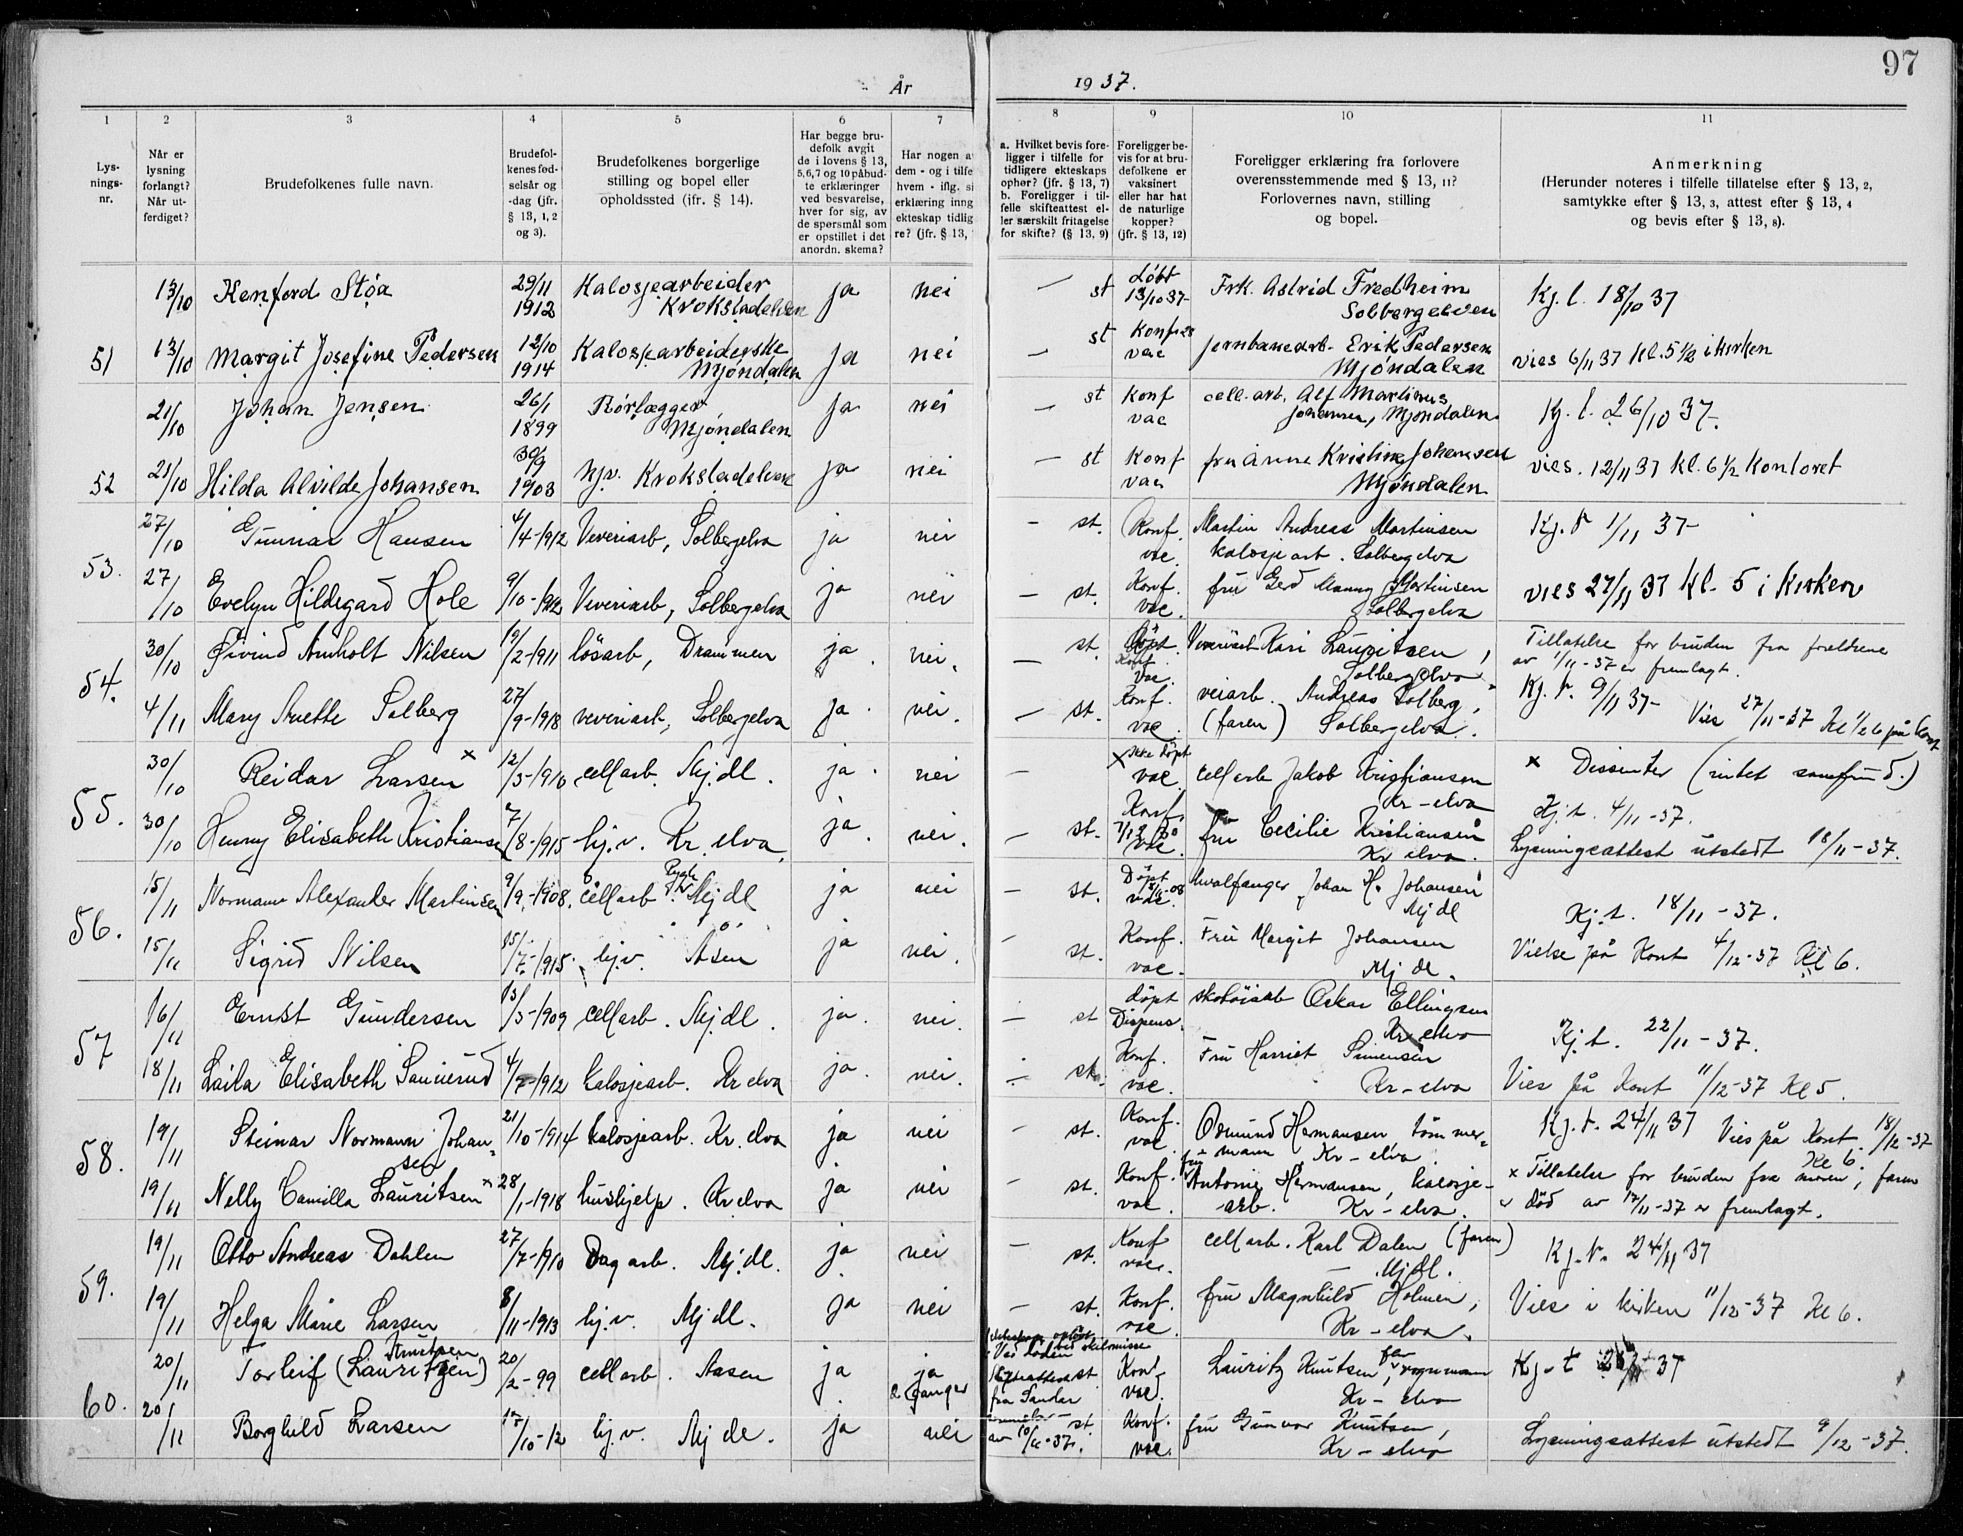 97
År 1937.
1 2 3 4 5 6 7 8 9 10 11
Lys-
nings-
nr.
Når er
lysning
forlangt?
Når ut-
ferdiget?
Brudefolkenes fulle navn.
Brudefol-
kenes fød-
selsår og
-dag (jfr.
§ 13, 1, 2
og 3).
Brudefolkenes borgerlige
stilling og bopel eller
opholdssted (ifr. § 14).
Har begge bru-
defolk avgit
de i lovens § 13,
5,6,7 og 10 påbud-
te erklæringer
ved besvarelse,
hver for sig, av
de spørsmål som
er opstillet i det
anordn. skema?
Har nogen a
dem - og i tilfe
hvem - iflg. si
erklæring inng
ekteskap tidlig
re? (jfr. § 13,
a. Hvilket bevis fore-
ligger i tilfelle for
tidligere ekteskaps
ophør? (jfr. § 13, 7)
b. Foreligger i til-
felle skifteattest el-
ler særskilt fritagelse
for skifte? (§ 13, 9)
Foreligger be-
vis for at bru-
defolkene er
vaksinert
eller har hat
de naturlige
kopper?
(jfr. § 13, 12)
Foreligger erklæring fra forlovere
overensstemmende med § 13, 11?
Forlovernes navn, stilling
og bopel.
Anmerkning
(Herunder noteres i tilfelle tillatelse efter § 13, 2,
samtykke efter § 13, 3, attest efter § 13, 4
og bevis efter § 13, 8).
13/10 Kenford Støa 29/11 1912 Kalosjearbeider Krokstadelven ja nei — st Løbt 13/10 37- Frk. Astrid Fredheim Solbergelven Kj. l. 18/10 37
51 13/10 Margit Josefine Pedersen 12/10 1914 Kalosjearbeiderske Mjøndalen ja nei — st Konf 28 vac Jernbanearb. Erik Pedersen Mjøndalen vies 6/11 37 Kl. 5 1/2 i kirken
21/10 Johan Jensen 26/1 1899 Rørlegger Mjøndalen ja nei — st Konf vac cell. arb. Alf Martinus Johansen, Mjøndalen Kj. l. 26/10 37.
52 21/10 Hilda Alvilde Johansen 30/9 1908 hjv. Krokstadelven ja nei — st Konf vac fru Anna Kristine Johansen Mjøndalen vies. 12/11 37 kl. 6 1/2 Kontoret
53. 27/10 Gunnar Hansen 4/4-1912 Veveriarb, Solbergelva ja nei — st. Konf. vac. Martin Andreas Martinsen kalosjearb. Solbergelva Kj. t 1/11 37-
27/10 Evelyn Hildegard Hole 9/10-1912 Veveriarb, Solbergelva ja nei — st. Konf. vac. fru Gerd Manny Martinsen Solbergelva vies 27/11 37 kl. 5 i kirken
54. 30/10 Øivind Amholt Nilsen 19/2-1911 løsarb, Drammen ja. nei. — st. Døpt. Konf. vac. Veveriarb Kari Lauritsen, Solbergelva. Tillatelse for bruden fra foreldrene
av 1/11-37 er fremlagt.
4/11 Mary Anette Solberg 27/9-1918 veveriarb, Solbergelva ja. nei. — st. Konf. vac. veiarb. Andreas Solberg, (faren) Solbergelva. Kj. t. 9/11 37- Vies 27/11-37 Kl 1/2 6 på Kont
55. 30/10 Reidar Larsen x 12/3-1910 cellarb. Mjdl. ja. nei — x Ikke døpt vac. cellarb Jakob Kristiansen Kr-elva x Dissenter (intet samfund.)
30/10 Henny Elisabeth Kristiansen 7/8-1915 hj.v. Kr. elva. ja. nei. — st. Konf. 7/12 30 vac. fru Cecilie Kristiansen Kr elva. Kj. t. 4/11-37.
Lysningsattest utstedt 18/11-37.
56. 15/11 Normann Alexander Martinsen 9/9-1908. cellarb. Mjdl ja nei — st. Døpt vac. hvalfanger Johan H. Johansen Mjdl Kj. t. 18/11-37.
15/11 Sigrid Nilsen 25/7-1915. hj.v. Åsen ja nei. — st. Konf. vac. Fru Margit Johansen Mjdl. Vielse på Kont 4/12-37 Kl 6.
57 16/11 Ernst Gundersen 13/3-1909 cellarb. Mjdl. ja. nei. — st døpt Dispens. skotøiarb Oskar Ellingsen Kr elva Kj. t. 22/11-37.
18/11 Laila Elisabeth Sannerud 4/7-1912 kalosjearb. Kr elva ja. nei. — st. Konf. vac. Fru Harriet Simensen Kr-elva Vies på Kont 11/12-37 Kl 5.
58. 19/11 Steinar Normann Johansen 21/10-1914 kalosjearb. Kr. elva ja nei — st. Konf. vac Osmund Hermansen, tømmermann, Kr-elva Kj. t. 24/11 37 Vies på Kont. 18/12-37 Kl 6.
19/11 Nelly Camilla Lauritsen x 28/1-1918 hushjelp. Kr elva ja nei — st. Konf. vac. fru Antonie Hermansen, kalosje-arb. Kr-elva. x Tillatelse for bruden fra moren, faren
død av 17/11-37 er fremlagt.
59. 19/11 Otto Andreas Dahlen 27/7-1910 Dagarb. Mj.dl. ja nei — st. Konf vac. cellarb. Karl Dalen (faren) Mjdl. Kj. t. 24/11 37
19/11 Helga Marie Larsen 8/11-1913 hj.v. Mjdl. ja nei — st. Konf. vac. fru Magnhild Holmen, Kr-elva. Vies i kirken 11/12-37 Kl 6.
60. 20/11 Torleif (Lauritzen) Knutsen 20/2-99 cellarb. Aasen ja ja 2 ganger Ved døden skilsmisse st. fra Sandar Konf. vac. Lauritz Knutsen, far, Kr-elva Kj-t 37
20/11 Borghild Larsen 17/10-12 hj.v. Mjdl. ja nei st. av 10/11-37. Konf. vac. fru Gunvor Knutsen, Kr-elva Lysningsattest utstedt 9/12-37.